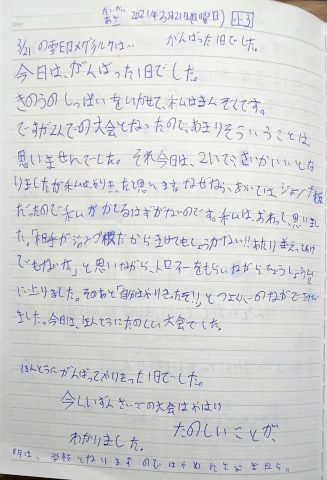 たいかい
あさ 2021年3月21日(日曜日) 小3
3/21の雪印メグミルクは… がんばった1日でした。
今日は、がんばった1日でした。
きのうのしっぱいをいかせて、私はまんぞくです。
ですが2人での大会となったので、あまりそういうことは、
思いませんでした。それ今日は、2いで、さいかいいとな
りましたが私は、やりきったと思います。なぜなら、あいては、ジャンプ
だったので私がかてるはずがないのです。私は、おわって思いまし
た。「相手がジャンプ だからまけてもしょうがない!!あたりまえ
でもないな」と思いながら、トロフィーをもらいながらひょうしょう台
に上りました。そのあと「自分はやりきったぞ!!」と
ました。今日は、ほんとうにたのしい大会でした。
ほんとうにがんばってやりきった1日でした。
今しいずんさいごの大会はやはり
たのしいことが、
わかりました。